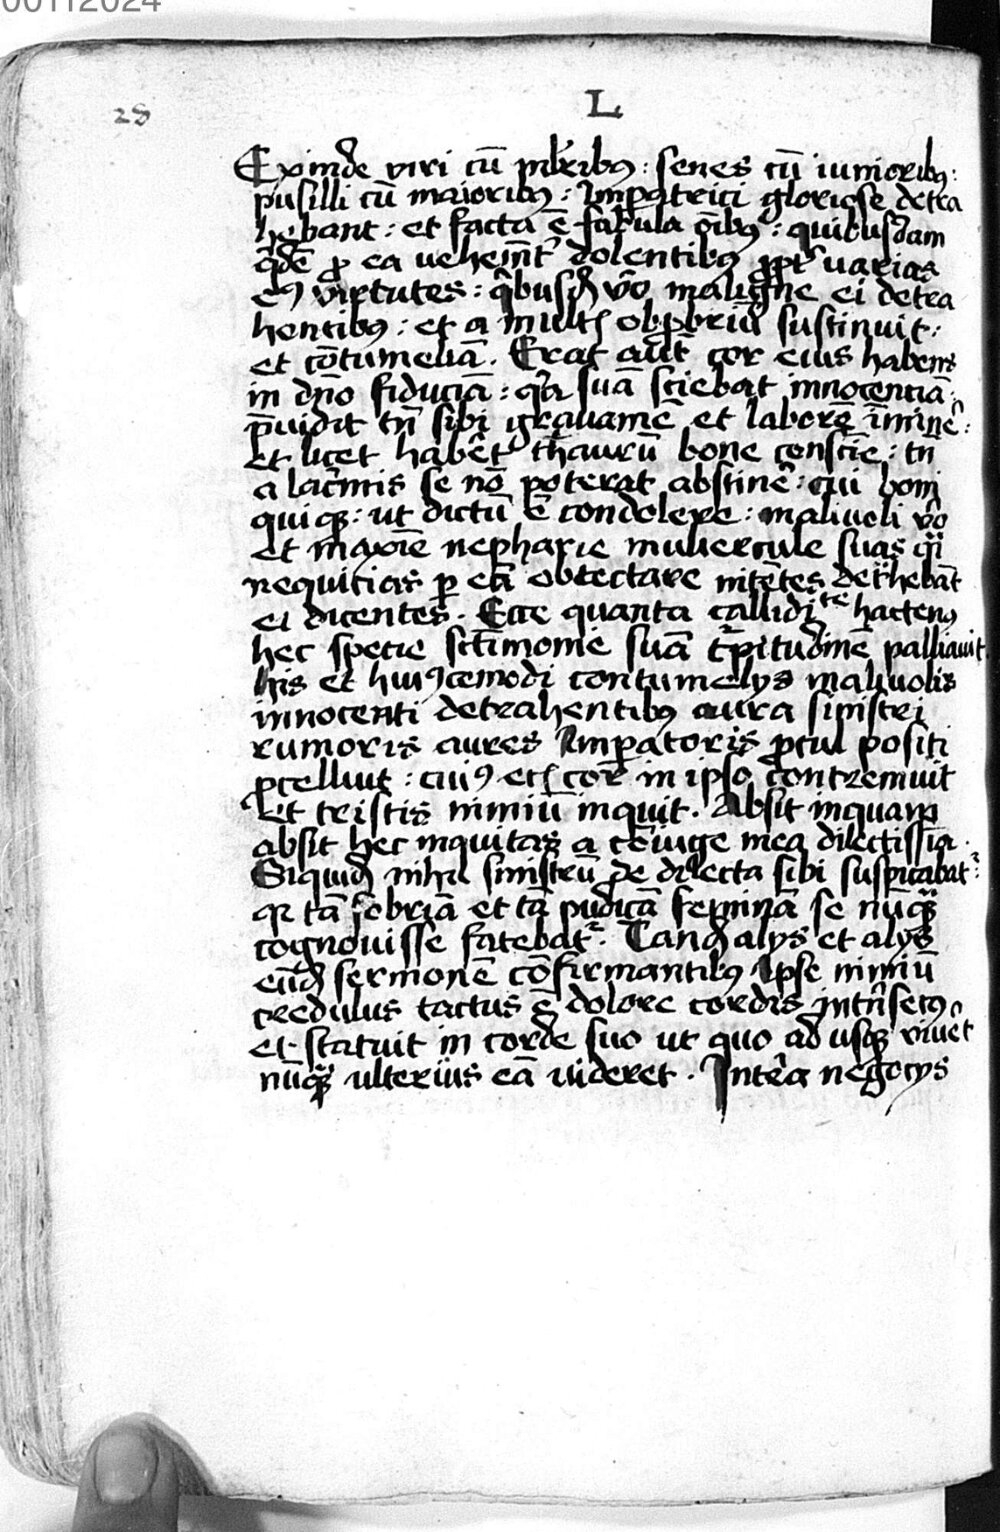 00112024
28
L
Exinde viri cū mulieribꝰ : senes cū iunioribꝰ :
pusilli cū maioribꝰ : Impatrici gloriose detra
hebant : et facta ē fabula oībꝰ : quibusdam
qdē ꝓ ea vehemēt dolentibꝰ ꝓpt varias
eiꝰ virtutes : qbusđ vō maligne ei detra
hentibꝰ : et a mult obꝓbriū sustinuit :
et cōtumeliā . Erat aūt cor eius habens
in dn̄o fiduciā : qa suā sciebat innocenciā .
p̄uidit tn̄ sibi grauamē et laborē īminē :
Et licet habēt thaurū bone conscie : tn̄
a lacīmis se nō poterat abstinē : cui boni
quiqꝫ : ut dictū ē condolere : maliuoli vō
et maxīe nepharie muliercule suas
nequitias ꝑ eā obtectare nitētes det̄hebāt
ei dicentes . Ecce quanta calliditate hactenꝰ
hec specie sctīmonie suā tpitudinē palliauit
his et huiꝰcemodi contumelys maliuolis
innocenti detrahentibꝰ aura sinistri
rumoris aures Imꝑatoris ꝓcul positi
ꝑcellunt : cuiꝰ et cor in ipso contremuit
Et tristis nimiū inquit . Absit inquam
absit hec iniquitas a cōiuge mea dilectissīa .
Siquiđ nihil sinistrū de dilecta sibi suspicabat
qꝛ tā sobriā et tā pudicā feminā se nūqꝫ
cognouisse fatebat . Tandē alys et alys
eūđ sermonē cōfirmantibꝰ Ipse nimiū
credulus tactus ē dolore cordis int̄nsecꝰ
et statuit in corde suo ut quo ad usqꝫ viuēt
nūqꝫ ulterius eā videret . Intera negocys